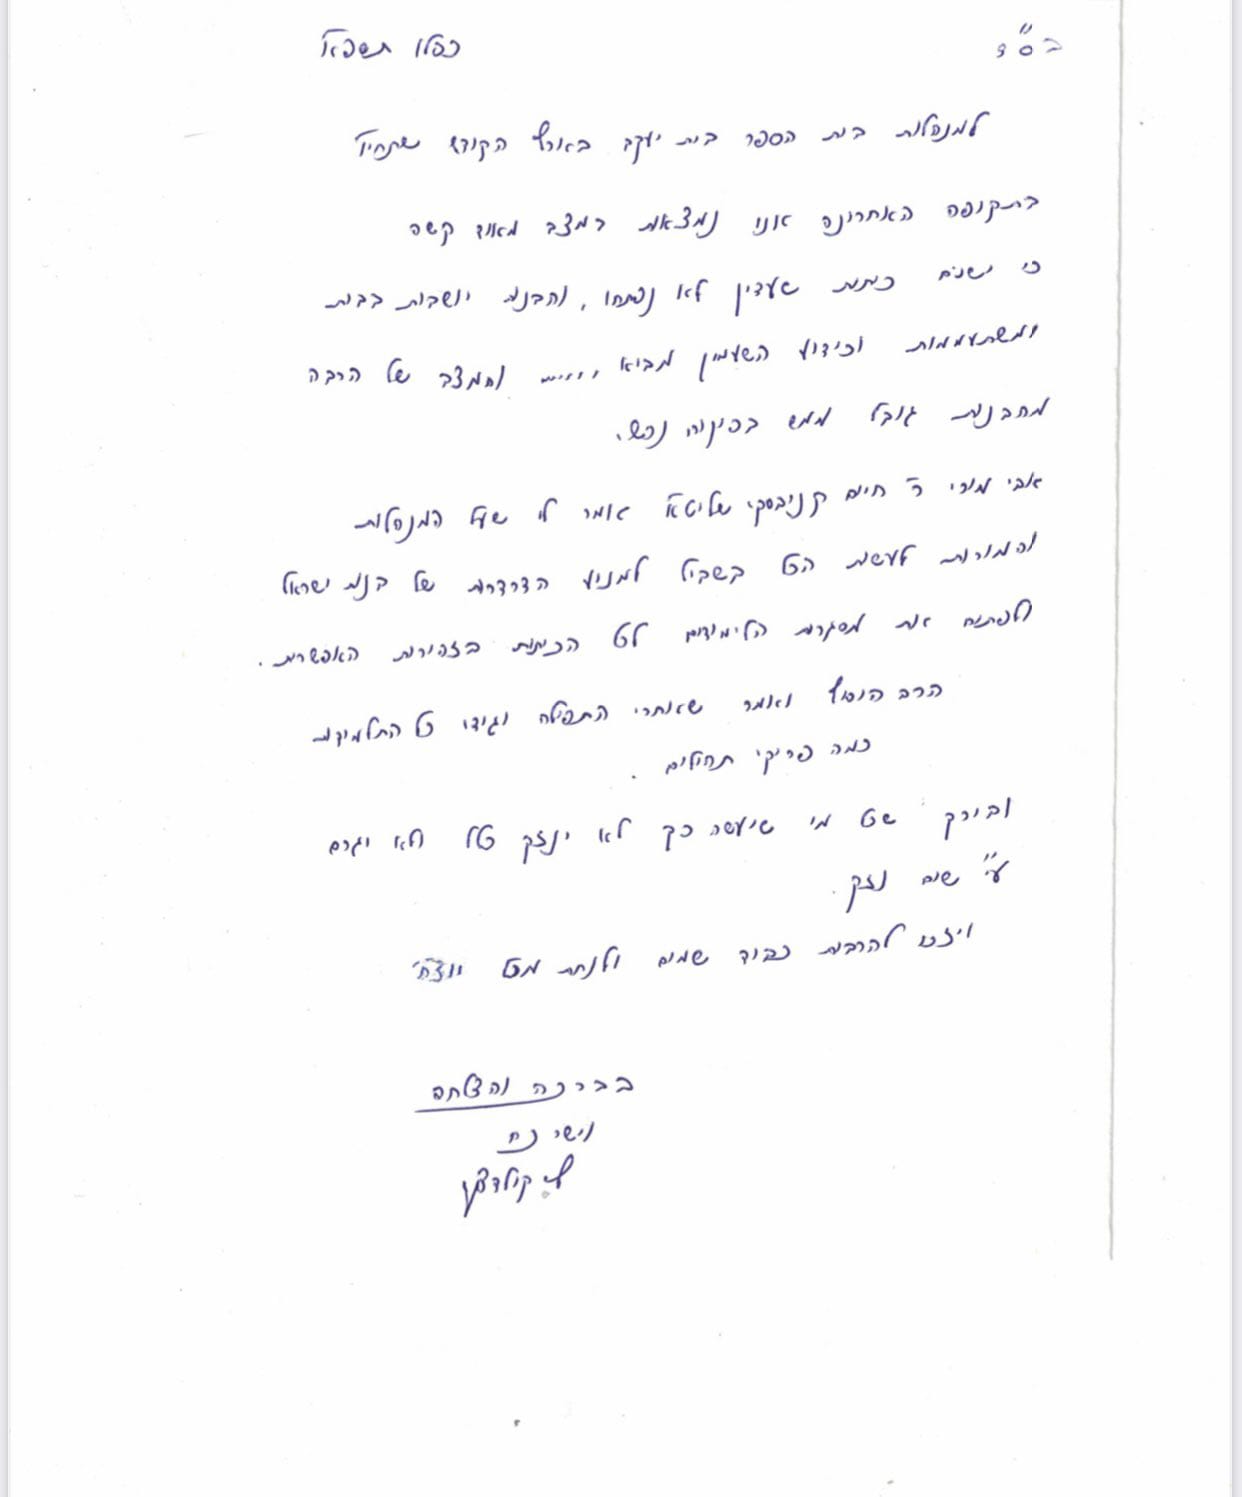 בס"ד
כסלו תשפ"א
למנהלות בית הספר בית יעקב בארץ הקודש שתחי'
בתקופה האחרונה אני נמצאת במצב מאוד קשה
כי ישנם כיתות שעדין לא נפתחו, והבנות יושבות בבית
ומשתעממות וכידוע השעמום מביא ,,.... והמצב של הרבה
מהבנות גובל ממש בפיקוח נפש.
אבי מורי ר' חיים קניבסקי שליט"א אמר לי שעל המנהלות
והמורות לעשות הכל בשביל למנוע הדרדרות של בנות ישראל
ולפתוח את מסגרות הלימודים לכל הכיתות בזהירות האפשרית.
הרב הוסיף ואמר שאחרי התפילה יגידו כל התלמידות
כמה פריקי תהילים.
ובירך שכל מי שיעשה כך לא ינזק כלל ולא יגרם
ע"י שום נזק.
ויזכו להרבות כבוד שמים ולנחת מכל יוצ"ח
בברכה והצלחה
קולדצקי